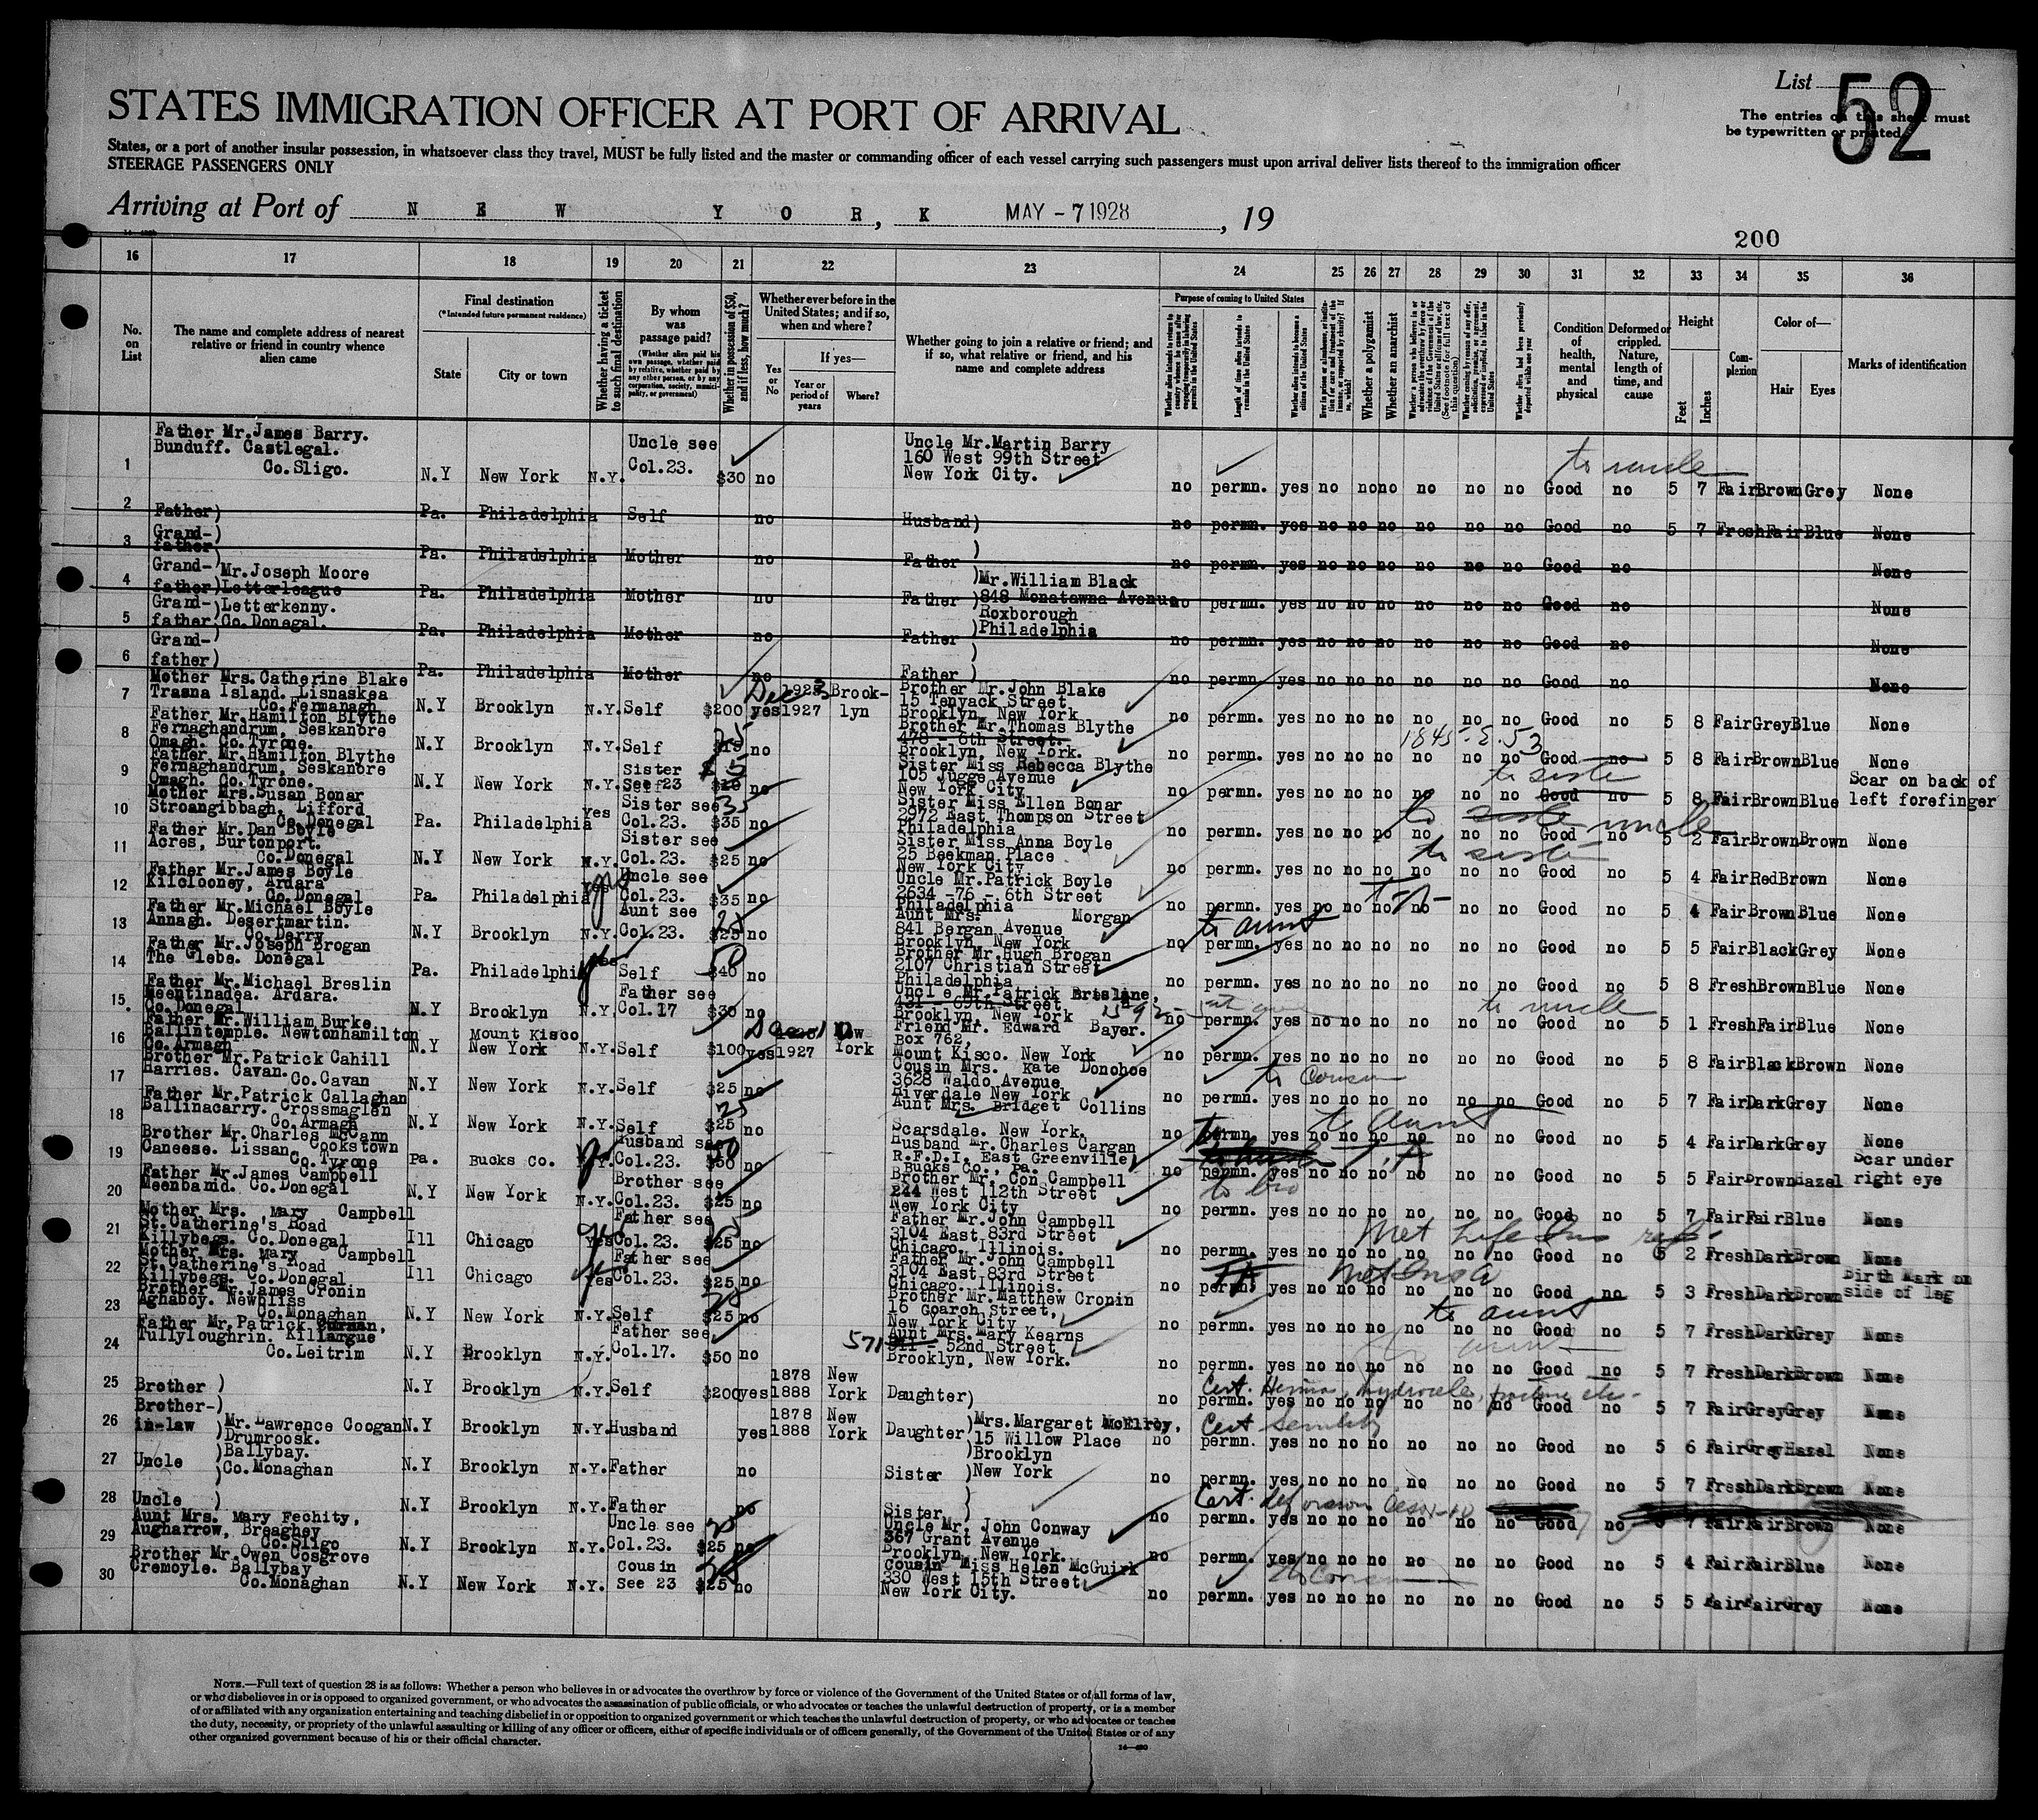 List 52
The entries on this sheet must
be typewritten or printed
STATES IMMIGRATION OFFICER AT PORT OF ARRIVAL
States, or a port of another insular possession, in whatsoever class they travel, MUST be fully listed and the master or commanding officer of each vessel carrying such passengers must upon arrival deliver lists thereof to the immigration officer
STEERAGE PASSENGERS ONLY
Arriving at Port of N E W Y O R K, MAY - 7 1928, 19
200
16 17 18 19 20 21 22 23 24 25 26 27 28 29 30 31 32 33 34 35 36
No. on List
The name and complete address of nearest relative or friend in country whence alien came
Final destination
(*Intended future permanent residence)
State
City or town
Whether having a ticket to such final destination
By whom was passage paid?
(Whether alien paid his own passage, whether paid by relative, whether paid by any other person, or by any corporation, society, municipality, or government)
Whether in possession of $50, and if less, how much?
Whether ever before in the United States; and if so, when and where?
Yes or No
If yes—
Year or period of years
Where?
Whether going to join a relative or friend; and if so, what relative or friend, and his name and complete address
Purpose of coming to United States
Length of time alien intends to remain in the United States
Whether alien intends to become a citizen of the United States
Whether a polygamist
Whether an anarchist
Condition of health, mental and physical
Deformed or crippled. Nature, length of time, and cause
Height
Feet
Inches
Complexion
Color of—
Hair
Eyes
Marks of identification
1 Father Mr. James Barry. Bunduff. Castlegal. Co. Sligo. N.Y New York N.Y. Uncle see Col. 23. $30 no Uncle Mr. Martin Barry 160 West 99th Street New York City. no permn. yes no no no no no no Good no 5 7 Fair Brown Grey None
to uncle
2 Father) Pa. Philadelphia Self no Husband) no permn. yes no no no no no no Good no 5 7 Fresh Fair Blue None
3 Grand-father) Pa. Philadelphia Mother no Father ) no permn. yes no no no no no no Good no None
4 Grand-father) Mr. Joseph Moore Letterleague Pa. Philadelphia Mother no Father ) Mr. William Black 848 Monatawna Avenue no permn. yes no no no no no no Good no None
5 Grand-father) Letterkenny. Co. Donegal. Pa. Philadelphia Mother no Father ) Roxborough Philadelphia no permn. yes no no no no no no Good no None
6 Grand-father) Pa. Philadelphia Mother no Father ) no permn. yes no no no no no no Good no None
7 Mother Mrs. Catherine Blake Trasna Island. Lisnaskea Co. Fermanagh N.Y Brooklyn N.Y. Self $200 yes Dec 1923 1927 Brook-lyn Brother Mr. John Blake 15 Tenyack Street Brooklyn, New York no permn. yes no no no no no no Good no 5 8 Fair Grey Blue None
8 Father Mr. Hamilton Blythe Fernaghandrum, Seskanore Omagh. Co. Tyrone. N.Y Brooklyn N.Y. Self no Brother Mr. Thomas Blythe 478 - 6th Street. Brooklyn New York. no permn. yes no no no no no no Good no 5 8 Fair Brown Blue None
1845 - E. 53
9 Father Mr. Hamilton Blythe Fernaghandrum, Seskanore Omagh. Co. Tyrone. N.Y New York N.Y. Sister See 23 $20 no Sister Miss Rebecca Blythe 105 Jugge Avenue New York City no permn. yes no no no no no no Good no 5 8 Fair Brown Blue Scar on back of left forefinger
to sister
10 Mother Mrs. Susan Bonar Stroangibbagh. Lifford Co. Donegal Pa. Philadelphia yes Sister see Col. 23. $35 no Sister Miss Ellen Bonar 2972 East Thompson Street Philadelphia no permn. yes no no no no no no Good no 5 2 Fair Brown Brown None
to uncle
11 Father Mr. Dan Boyle Acres, Burtonport. Co. Donegal N.Y New York N.Y. Sister see Col. 23. $25 no Sister Miss Anna Boyle 25 Beekman Place New York City no permn. yes no no no no no no Good no 5 4 Fair Red Brown None
to sister
12 Father Mr. James Boyle Kilclooney, Ardara Co. Donegal Pa. Philadelphia yes Uncle see Col. 23. $35 no Uncle Mr. Patrick Boyle 2634 -76 - 6th Street Philadelphia no permn. yes no no no no no no Good no 5 4 Fair Brown Blue None
13 Father Mr. Michael Boyle Annagh. Desertmartin. Co. Derry N.Y Brooklyn N.Y. Aunt see Col. 23. $25 no Aunt Mrs. Morgan 841 Bergan Avenue Brooklyn, New York no permn. yes no no no no no no Good no 5 5 Fair Black Grey None
to aunt
14 Father Mr. Joseph Brogan The Glebe. Donegal Pa. Philadelphia yes Self $40 50 no Brother Mr. Hugh Brogan 2107 Christian Street Philadelphia no permn. yes no no no no no no Good no 5 8 Fresh Brown Blue None
15 Father Mr. Michael Breslin Meentinadea. Ardara. Co. Donegal N.Y Brooklyn N.Y. Father see Col. 17 $30 no Uncle Mr. Patrick Brisline, 431 - 69th Street Brooklyn, New York no permn. yes no no no no no no Good no 5 1 Fresh Fair Blue None
to uncle
16 Father Mr. William Burke Ballintemple. Newtonhamilton Co. Armagh N.Y Mount Kisco New York N.Y. Self $100 yes 1927 New York Friend Mr. Edward Bayer. Box 762, Mount Kisco. New York no permn. yes no no no no no no Good no 5 8 Fair Black Brown None
17 Brother Mr. Patrick Cahill Harries. Cavan. Co. Cavan N.Y New York N.Y. Self $25 no Cousin Mrs. Kate Donohoe 3628 Waldo Avenue Riverdale New York no permn. yes no no no no no no Good no 5 7 Fair Dark Grey None
to Cousin
18 Father Mr. Patrick Callaghan Ballinacarry. Crossmaglen Co. Armagh N.Y New York N.Y. Self $25 no Aunt Mrs. Bridget Collins Scarsdale. New York. no permn. yes no no no no no no Good no 5 4 Fair Dark Grey None
to aunt
19 Brother Mr. Charles McCann Caneese. Lissan Cookstown Co. Tyrone Pa. Bucks Co. Husband see Col. 23. $50 no Husband Mr. Charles Cargan R.F.D.I. East Greenville, Bucks Co., Pa. no permn. yes no no no no no no Good no 5 5 Fair Brown Hazel Scar under right eye
20 Father Mr. James Campbell Meenbanid. Co. Donegal N.Y New York N.Y. Brother see Col. 23. $25 no Brother Mr. Con Campbell 244 West 112th Street New York City no permn. yes no no no no no no Good no 5 7 Fair Fair Blue None
to bro
21 Mother Mrs. Mary Campbell St. Catherine's Road Killybegs. Co. Donegal Ill Chicago Yes Father see Col. 23. $25 no Father Mr. John Campbell 3104 East 83rd Street Chicago. Illinois. no permn. yes no no no no no no Good no 5 2 Fresh Dark Brown None
Met Life Ins
22 Mother Mrs. Mary Campbell St. Catherine's Road Killybegs. Co. Donegal Ill Chicago Yes Father see Col. 23. $25 no Father Mr. John Campbell 3104 East 83rd Street Chicago. Illinois. no permn. yes no no no no no no Good no 5 3 Fresh Dark Brown Birth Mark on side of leg
23 Brother Mr. James Cronin Aghaboy. Newbliss Co. Monaghan N.Y New York N.Y. Self $25 no Brother Mr. Matthew Cronin 16 Goarch Street, New York City no permn. yes no no no no no no Good no 5 7 Fresh Dark Grey None
to aunt
24 Father Mr. Patrick Tullyloughrin. Killargue Co. Leitrim N.Y Brooklyn N.Y. Father see Col. 17. $50 no Aunt Mrs. Mary Kearns 571 - 52nd Street Brooklyn, New York. no permn. yes no no no no no no Good no 5 7 Fresh Dark Brown None
25 Brother ) N.Y Brooklyn N.Y. Self $200 yes 1878 1888 New York Daughter) no permn. yes no no no no no no Good no 5 7 Fair Grey Grey None
Cert. Hernia, hydrocele,
26 Brother-in-law ) Mr. Lawrence Coogan Drumroosk. N.Y Brooklyn N.Y. Husband yes 1878 1888 New York Daughter) Mrs. Margaret McElroy, 15 Willow Place no permn. yes no no no no no no Good no 5 6 Fair Grey Hazel None
Cert Senility
27 Uncle ) Ballybay. Co. Monaghan N.Y Brooklyn N.Y. Father no Sister ) Brooklyn New York no permn. yes no no no no no no Good no 5 7 Fresh Dark Brown None
28 Uncle ) N.Y Brooklyn N.Y. Father no Sister ) no permn. yes no no no no no no Good no 5 7 Fair Fair Brown None
29 Aunt Mrs. Mary Fechity, Augharrow, Breaghey Co. Sligo N.Y Brooklyn N.Y. Uncle see Col. 23. $25 no Uncle Mr. John Conway 367 Grant Avenue Brooklyn, New York. no permn. yes no no no no no no Good no 5 4 Fair Fair Blue None
30 Brother Mr. Owen Cosgrove Cremoyle. Ballybay Co. Monaghan N.Y New York N.Y. Cousin See 23 $25 no Cousin Miss Helen McGuirk 330 West 15th Street New York City. no permn. yes no no no no no no Good no 5 5 Fair Fair Grey None
NOTE.—Full text of question 28 is as follows: Whether a person who believes in or advocates the overthrow by force or violence of the Government of the United States or of all forms of law,
or who disbelieves in or is opposed to organized government, or who advocates the assassination of public officials, or who advocates or teaches the unlawful destruction of property, or is a member
of or affiliated with any organization entertaining and teaching disbelief in or opposition to organized government or which teaches the unlawful destruction of property, or who advocates or teaches
the duty, necessity, or propriety of the unlawful assaulting or killing of any officer or officers, either of specific individuals or of officers generally, of the Government of the United States or of any
other organized government because of his or their official character.